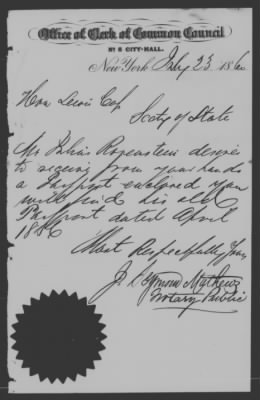 Office of Clerk of Common Council
No 8 CITY-HALL.
New York July 23 1860
Hon Lewis Cass
Secty of State
Mr Julius Rosenstein desires
to receive from your hands
a Passport enclosed you
will find his old
Passport dated April
1856
Most Respectfully Yours
J. Seymour Mathews
Notary Public